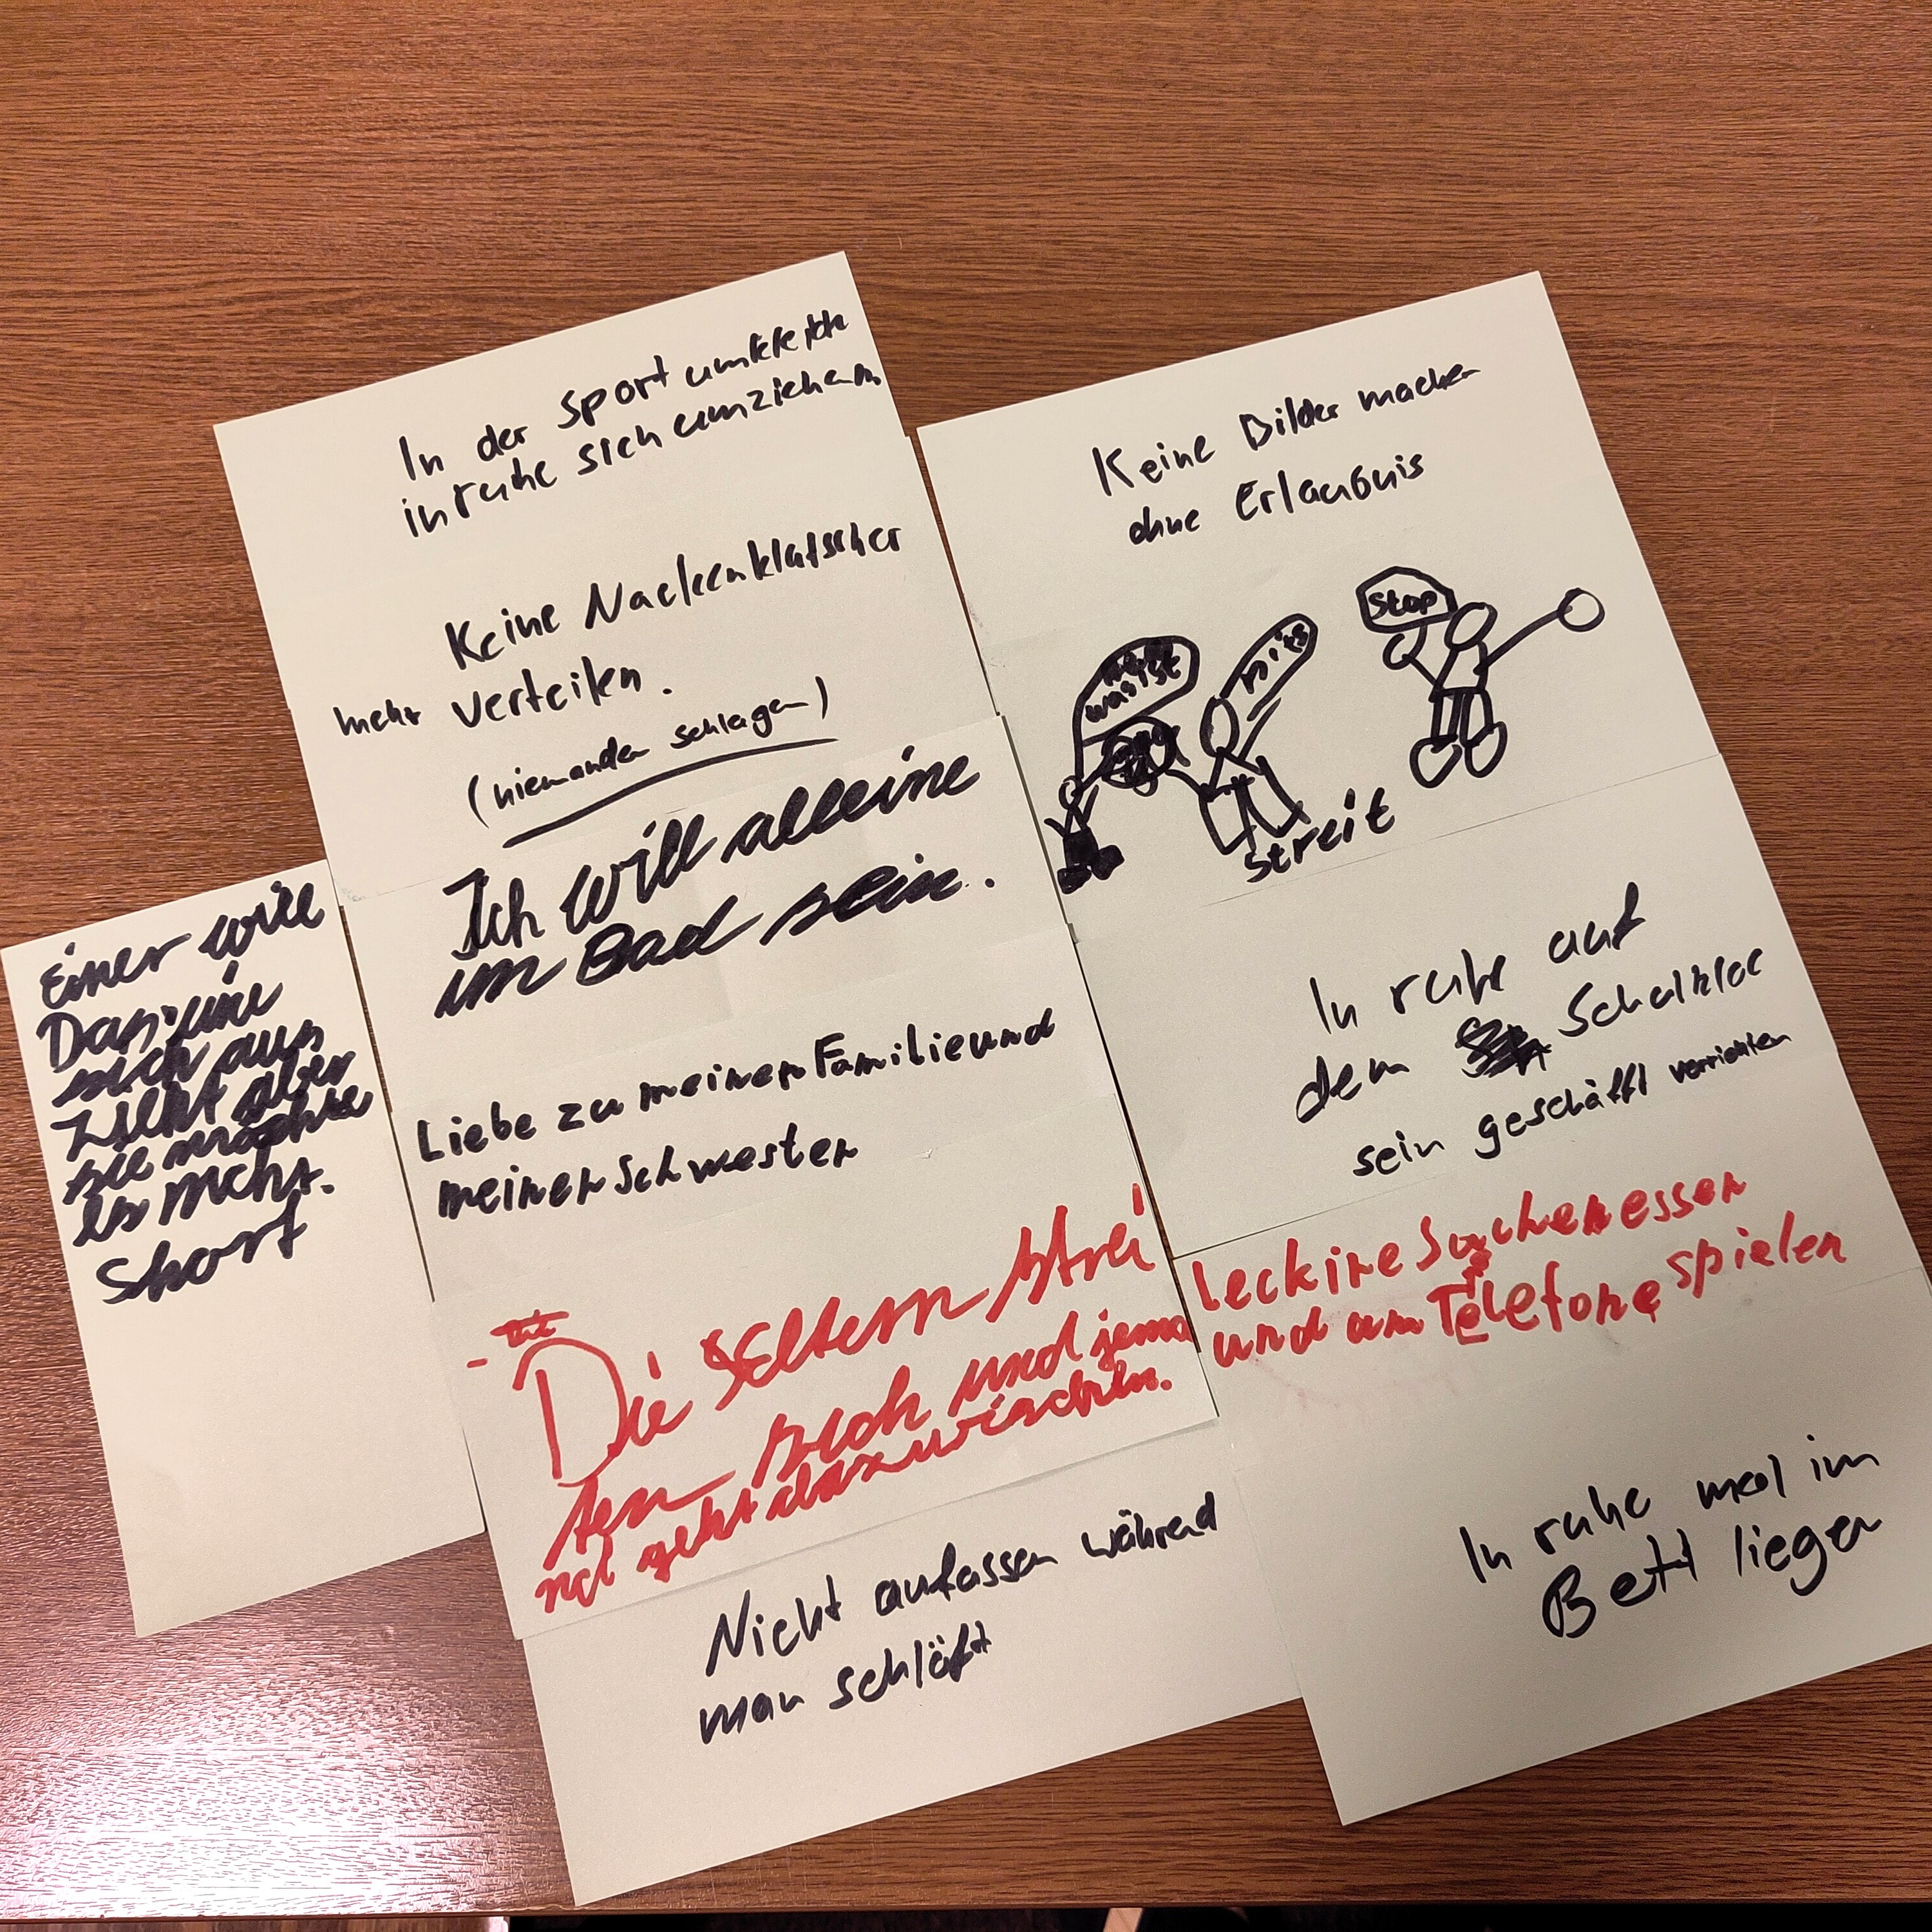 In der Sport umkleide
in ruhe sich umziehen
Keine Nackenklatscher
mehr verteilen.
(niemanden schlagen)
Ich will alleine
im Bad sein.
einer will
Das eine
sich aus
zieht aber
sie möchte
es nicht.
Short
Liebe zu meiner Familie und
meiner Schwester
Die Eltern strei
ten sich und jema
nd geht dazwischen.
Nicht anfassen während
man schläft
Keine Bilder machen
ohne Erlaubnis
was ist
Stop
Streit
In ruhe auf
dem Schalkloc
sein geschäfft verrichten
leckire Sachen essen
und am Telefone spielen
In ruhe mal im
Bett liegen